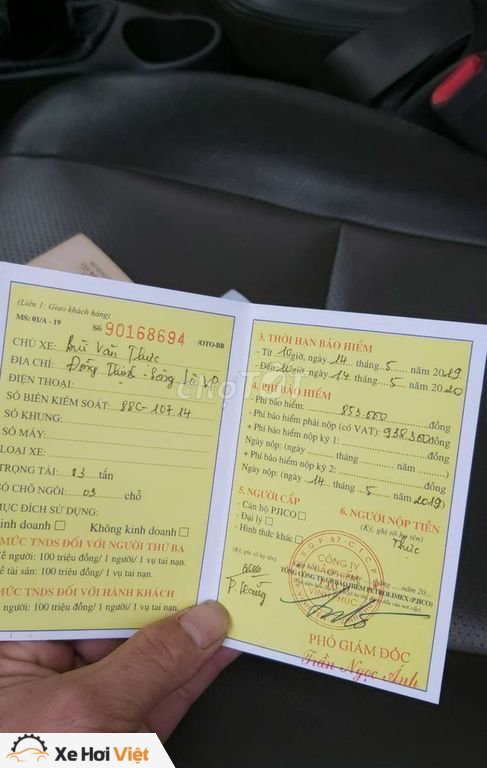 (Liên 1: Giao khách hàng)
MS: 01/A - 19
Số: 90168694 /OTO-BB
CHỦ XE: Bùi Văn Thức
ĐỊA CHỈ: Đồng Thịnh - Sông Lô - VP
ĐIỆN THOẠI:
SỐ BIỂN KIỂM SOÁT: 88C-107.14
SỐ KHUNG:
SỐ MÁY:
LOẠI XE:
TRỌNG TẢI: 03 tấn
SỐ CHỖ NGỒI: 03 chỗ
MỤC ĐÍCH SỬ DỤNG:
kinh doanh Không kinh doanh
MỨC TNDS ĐỐI VỚI NGƯỜI THỨ BA
Về người: 100 triệu đồng/ 1 người/ 1 vụ tai nạn.
Về tài sản: 100 triệu đồng/ 1 vụ tai nạn.
MỨC TNDS ĐỐI VỚI HÀNH KHÁCH
người: 100 triệu đồng/ 1 người/ 1 vụ tai nạn.
3. THỜI HẠN BẢO HIỂM
- Từ 10 giờ, ngày 14 tháng 5 năm 2019
- Đến giờ, ngày 14 tháng 5 năm 2020
4. PHÍ BẢO HIỂM
- Phí bảo hiểm: 853.000 đồng
- Phí bảo hiểm phải nộp (có VAT): 938.300 đồng
+ Phí bảo hiểm nộp kỳ 1: đồng
Ngày nộp: (ngày tháng năm )
+ Phí bảo hiểm nộp kỳ 2: đồng
Ngày nộp: (ngày 14 tháng 5 năm 2019)
5. NGƯỜI CẤP
- Cán bộ PJICO
- Đại lý
- Hình thức khác
(Ký, ghi rõ họ tên)
6. NGƯỜI NỘP TIỀN
(Ký, ghi rõ họ tên)
Thức
CÔNG TY
BẢO HIỂM
VĨNH PHÚC
TỔNG CÔNG TY CP BẢO HIỂM PETROLIMEX (PJICO)
PHÓ GIÁM ĐỐC
Trần Ngọc Ánh
Chợ TỐT
Xe Hơi Việt